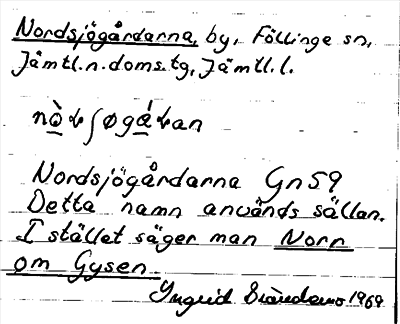 Nordsjögårdarna, by, Föllinge sn,
Jämtl.n.doms.tg, Jämtl.l.
Nordsjögårdarna Gn59
Detta namn används sällan.
I stället säger man Norn
om Gysen
Yngrid 1969